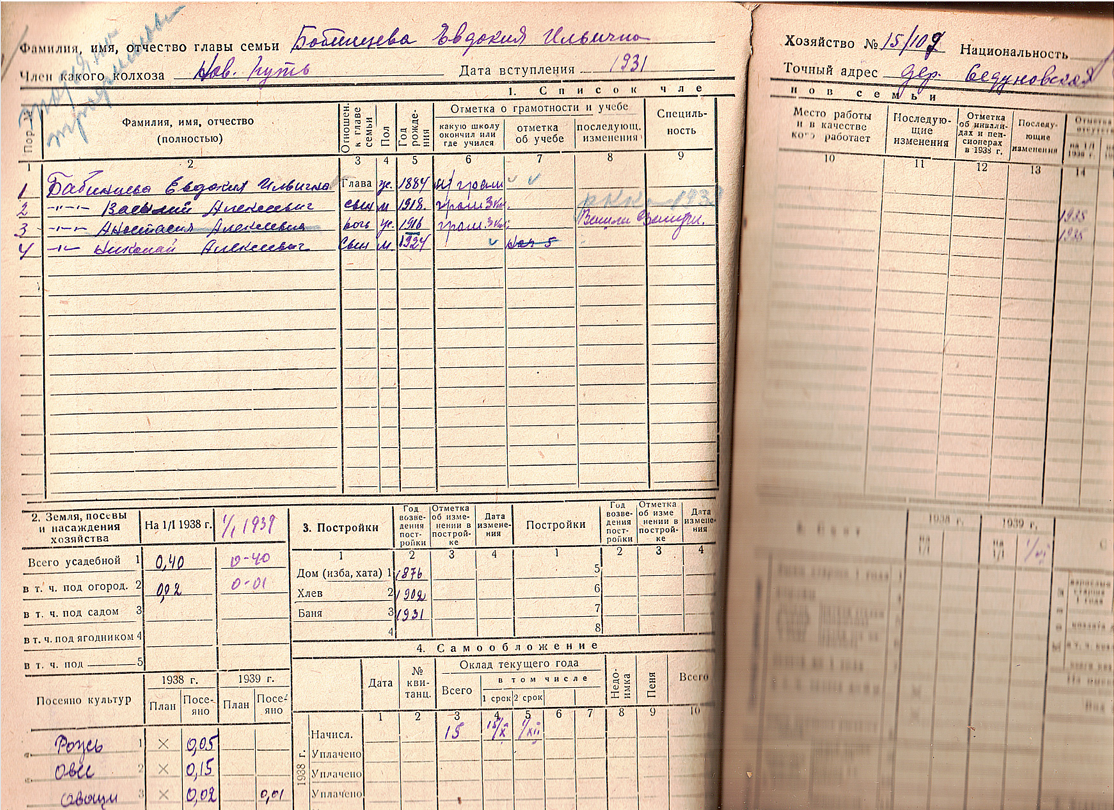 Фамилия, имя, отчество главы семьи Бабинцева Евдокия Ильична
Член какого колхоза Нов. путь Дата вступления 1931
Хозяйство № 15/109 Национальность
Точный адрес дер. Седуновская
1. Список членов семьи
Пор. № Фамилия, имя, отчество (полностью) Отношен. к главе семьи Пол Год рождения Отметка о грамотности и учебе Специльность
какую школу окончил или где учился отметка об учебе последующ. изменения
Место работы и в качестве кого работает Последующие изменения Отметка об инвалидах и пенсионерах в 1938 г. Последующие изменения на 1/I 1938 г.
1 2 3 4 5 6 7 8 9 10 11 12 13 14
1 Бабинцева Евдокия Ильична Глава ж. 1884 н/грам
2 -"- Василий Алексеевич сын м 1918 грам. 3 кл. РККА 1938
3 -"- Анастасия Алексеевна дочь ж. 1916 грам. 3 кл. 1935
4 -"- Николай Алексеевич Сын м. 1924 1935
2. Земля, посевы и насаждения хозяйства На 1/I 1938 г. 1/I 1939
Всего усадебной 1 0,40 0-40
в т. ч. под огород. 2 0,02 0-01
в т. ч. под садом 3
в т. ч. под ягодником 4
в т. ч. под 5
Посеяно культур 1938 г. 1939 г.
План Посеяно План Посеяно
Рожь 1 × 0,05
Овес 2 × 0,15
Овощи 3 × 0,02 0,01
3. Постройки Год возведения постройки Отметка об изменении в постройке Дата изменения Постройки Год возведения постройки Отметка об изменении в постройке Дата изменения
1 2 3 4 1 2 3 4
Дом (изба, хата) 1 1876 5
Хлев 2 1902 6
Баня 3 1931 7
4 8
4. Самообложение
Дата № квитанц. Оклад текущего года Недоимка Пеня Всего
Всего в том числе
1 срок 2 срок
1 2 3 4 5 6 7 8 9 10
1938 г.
Начисл. 15 15/X 1/XII
Уплачено
Уплачено
Уплачено
1938 г. 1939 г.
на 1/I на 1/I 1/VI